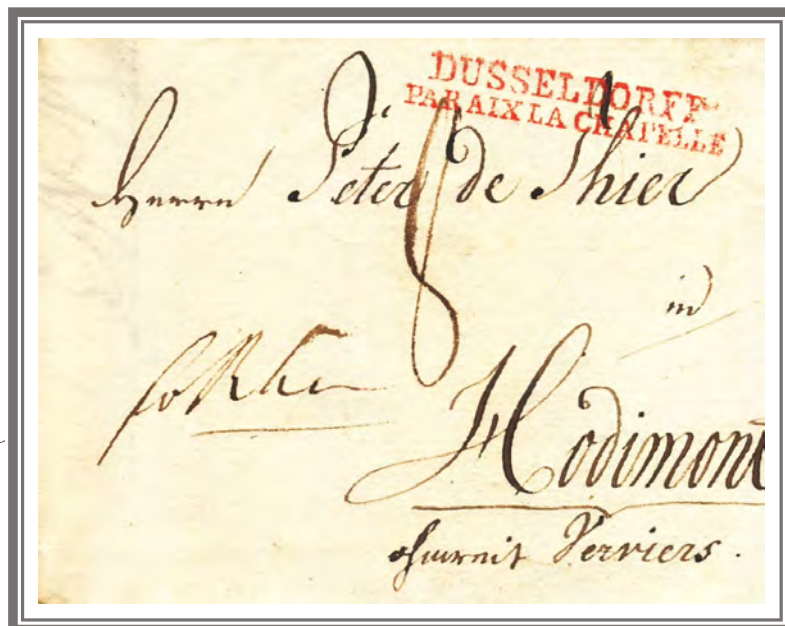 DUSSELDORFF
PAR AIX LA CHAPELLE
Herrn Peter de Thier
in
Hodimont
ohnweit Verviers.